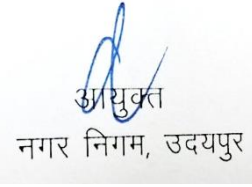 आयुक्त
नगर निगम, उदयपुर